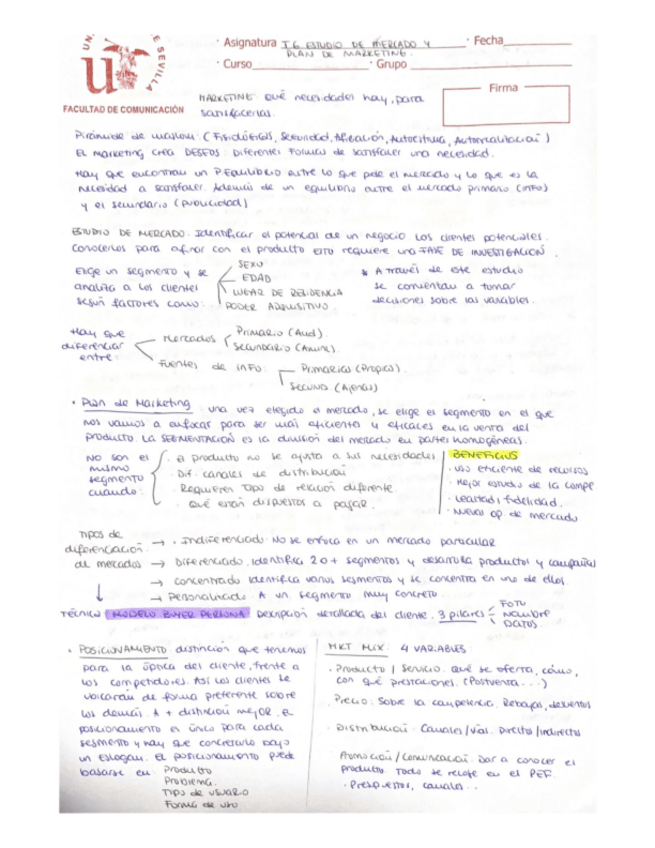 UN E SEVILLA
u
FACULTAD DE COMUNICACIÓN
· Asignatura T.6 ESTUDIO DE MERCADO Y PLAN DE MARKETING.
· Fecha
· Curso
· Grupo
Firma
MARKETING: Qué necesidades hay, para
satisfacerlas.
Pirámide de maslow: (Fisiológicas, Seguridad, Afiliación, Autoestima, Autorrealización)
EL MARKETING CREA DESEOS: Diferentes formas de satisfacer una necesidad.
Hay que encontrar un P. Equilibrio entre lo que pide el mercado y lo que es la
necesidad a satisfacer. Además de un equilibrio entre el mercado primario (info)
y el secundario (publicidad)
ESTUDIO DE MERCADO: Identificar el potencial de un negocio los clientes potenciales.
Conocerlos para afinar con el producto esto requiere una FASE DE INVESTIGACIÓN.
Elige un segmento y se
analiza a los clientes
según factores como:
SEXO
EDAD
LUGAR DE RESIDENCIA
PODER ADQUISITIVO.
* A través de este estudio
se comienzan a tomar
decisiones sobre las variables.
Hay que
diferenciar
entre:
Mercados
Primario (Aud).
Secundario (Anunc).
Fuentes de INFO:
Primarias (Propias).
Secund (Ajenas)
· Plan de Marketing: una vez elegido el mercado, se elige el segmento en el que
nos vamos a enfocar para ser más eficientes y eficaces en la venta del
producto. LA SEGMENTACIÓN es la división del mercado en partes homogéneas.
NO son el
mismo
segmento
cuando:
· El producto no se ajusta a sus necesidades
· Dif. canales de distribución
· Requieren tipo de relación diferente.
· Qué están dispuestos a pagar.
BENEFICIOS
· Uso eficiente de recursos
· Mejor estudio de la compe
· Lealtad y fidelidad.
· Nuevas op. de mercado
Tipos de
diferenciación
de mercados
→ · Indiferenciado: No se enfoca en un mercado particular
→ Diferenciado. Identifica 2 o + segmentos y desarrolla productos y campañas
→ concentrado identifica varios segmentos y se concentra en uno de ellos
→ Personalizado. A un segmento muy concreto.
TÉCNICA: MODELO BUYER PERSONA: Descripción detallada del cliente. 3 pilares
FOTO
Nombre
DATOS
· POSICIONAMIENTO: distinción que tenemos
para la óptica del cliente, frente a
los competidores. Así los clientes se
volcarán de forma preferente sobre
los demás. A + distinción mejor. El
posicionamiento es único para cada
segmento y hay que concretarlo bajo
un eslogan. El posicionamiento puede
basarse en:
Producto
Problema.
Tipo de usuario
Forma de uso
MKT MIX: 4 VARIABLES:
· Producto / Servicio. Qué se oferta, cómo,
con qué prestaciones. (Postventa...)
· Precio: Sobre la competencia. Rebajas, descuentos
· Distribución: Canales/vías. Directos/indirectos
Promoción / Comunicación. Dar a conocer el
producto. Todo se recoge en el PEF.
· Presupuestos, canales...